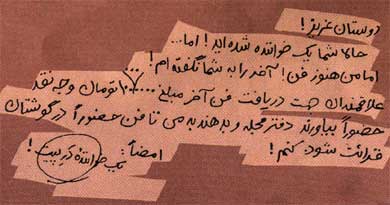 دوستان عزیز!
حالا شما یک خواننده شده‌اید! اما...
اما من هنوز فن! آخر را به شما نگفته‌ام!...
علاقمندان جهت دریافت فن آخر مبلغ ۱۰۷۰۰۰۰ تومان وجه نقد
حضوراً بیاورند دفتر مجله و بدهند به من تا فن حضوراً در گوشتان
قدائت شود. کنم!
امضاً: یک خوانندهٔ کر پیت!